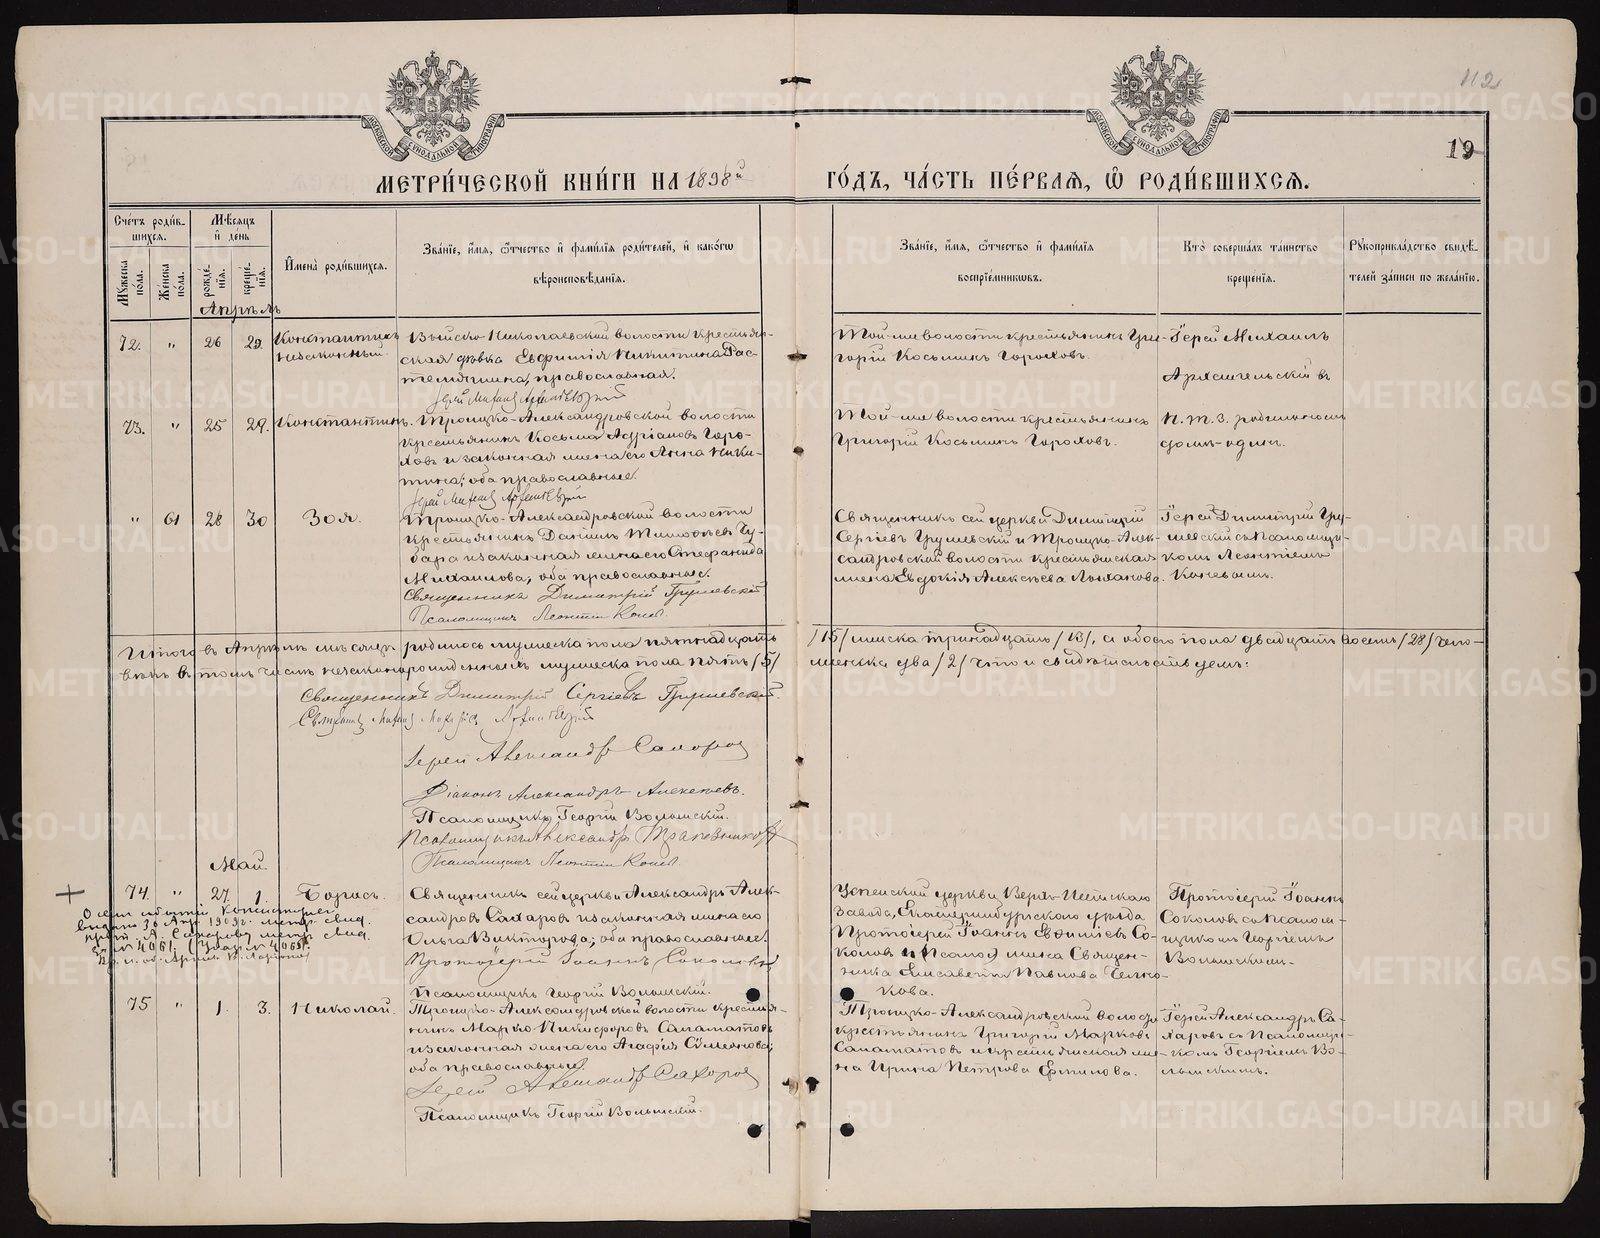 112
19
МЕТРИ́ЧЕСКОЙ КНИ́ГИ НА 1898й ГО́ДЪ, ЧА́СТЬ ПЕ́РВАЯ, Ѡ РОДИ́ВШИХСЯ.
Сче́тъ роди́в-
шихся.
Му́жеска по́ла.
Же́нска по́ла.
Мѣ́сяцъ
и де́нь
рожде́нїя.
креще́нїя.
Имена̀ роди́вшихся.
Зва́нїе, и́мя, ѻ́тчество и фами́лїя роди́телей, и како́гѡ
вѣроисповѣ́данїя.
Зва́нїе, и́мя, ѻ́тчество и фами́лїя
воспрїе́мниковъ.
Кто̀ соверша́лъ та́инство
креще́нїя.
Рꙋкоприкла́дство свидѣ́-
телей за́писи по жела́нїю.
Апрѣль
72. " 26 29. Константинъ
незаконный.
Выйско-Николаевской волости крестьян-
ская дѣвка Евфимія Никитина Рас-
телягина, православная.
Іерей Михаилъ Архангельскій
Той-же волости крестьянинъ Гри-
горій Косьминъ Гороховъ.
Іерей Михаилъ
Архангельскій въ
73. " 25 29. Константинъ.
Троицко-Александровской волости
крестьянинъ Косьма Адріановъ Горо-
ховъ и законная жена его Анна Ники-
тина; оба православные.
Іерей Михаилъ Архангельскій
Той-же волости крестьянинъ
Григорій Косьминъ Гороховъ.
Н. Т. З.
домѣ-одинъ.
" 61 28 30 Зоя.
Троицко-Александровской волости
крестьянинъ Даніилъ Тимоѳеевъ Чу-
бара и законная жена его Стефанида
Михаилова; оба православные.
Священникъ Димитрій Грушевскій
Псаломщикъ Леонтій Коневъ.
Священникъ сей церкви Димитрій
Сергіевъ Грушевскій и Троицко-Алек-
сандровской волости крестьянская
жена Евдокія Алексѣева Лоханова.
Іерей Димитрій Гру-
шевскій съ Псаломщи-
комъ Леонтіемъ
Коневымъ.
Итого въ Апрѣлѣ мѣсяцѣ родилось мужеска пола пятнадцать /15/ женска тринадцать /13/, а обоего пола двадцать восемь /28/ чело-
вѣкъ въ томъ числѣ незаконнорожденныхъ мужеска пола пять /5/ женска два /2/ что и свидѣтельствуемъ:
Священникъ Димитрій Сергіевъ Грушевскій
Священникъ Михаилъ Архангельскій
Іерей Александръ Сахаровъ
Діаконъ Александръ Алексѣевъ.
Псаломщикъ Георгій Волынскій.
Псаломщикъ Александръ Трапезниковъ
Псаломщикъ Леонтій Коневъ.
Май.
74. " 27. 1. Борисъ.
Священникъ сей церкви Александръ Алек-
сандровъ Сахаровъ и законная жена его
Ольга Викторова; оба православные.
Протоіерей Іоаннъ Соколовъ
Псаломщикъ Георгій Волынскій.
Успенской церкви Верхъ-Исетскаго
завода, Екатеринбургскаго уѣзда
Протоіерей Іоаннъ Евфиміевъ Со-
коловъ и жена Священ-
ника Елисавета Павлова
кова.
Протоіерей Іоаннъ
Соколовъ съ Псалом-
щикомъ Георгіемъ
Волынскимъ.
75 " 1. 3. Николай.
Троицко-Александровской волости крестья-
нинъ Марко Никифоровъ Саламатовъ
и законная жена его Агафія Симеонова;
оба православные.
Іерей Александръ Сахаровъ
Псаломщикъ Георгій Волынскій.
Троицко-Александровской волости
крестьянинъ Григорій Марковъ
Саламатовъ и крестьянская же-
на Ирина Петрова Ермилова.
Іерей Александръ Са-
харовъ съ Псаломщи-
комъ Георгіемъ Во-
лынскимъ.